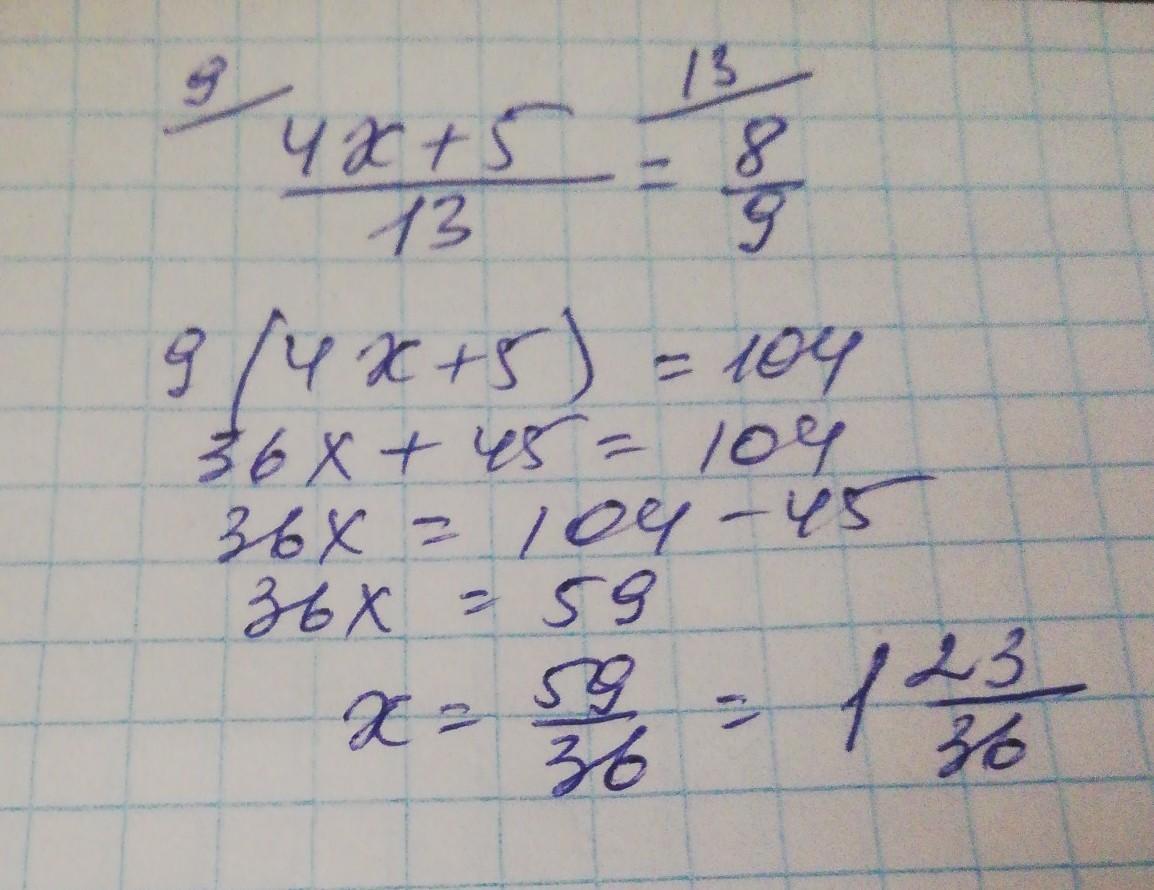 9/ (4x+5)/13 = 13/ 8/9
9(4x+5) = 104
36x + 45 = 104
36x = 104 - 45
36x = 59
x = 59/36 = 1 23/36